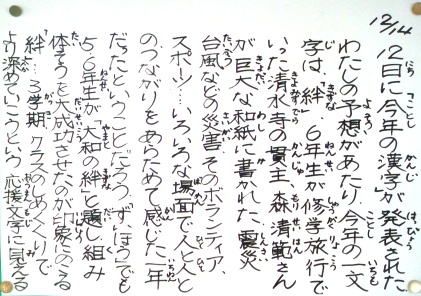 12/14
12日に「今年の漢字」が発表された
わたしの予想があたり、今年の一文
字は「絆」。6年生が修学旅行で
いった清水寺の貫主、森清範さん
が巨大な和紙に書かれた。震災
台風などの災害、そのボランティア、
スポーツ…いろいろな場面で人と人と
のつながりをあらためて感じた一年
だったということだろう。ずいほうでも
5・6年生が「大和の絆」と題し組み
体そうを大成功させたのが印象にのこる
絆…3学期、クラスのめくりで
より深めていこうという応援文字に見える